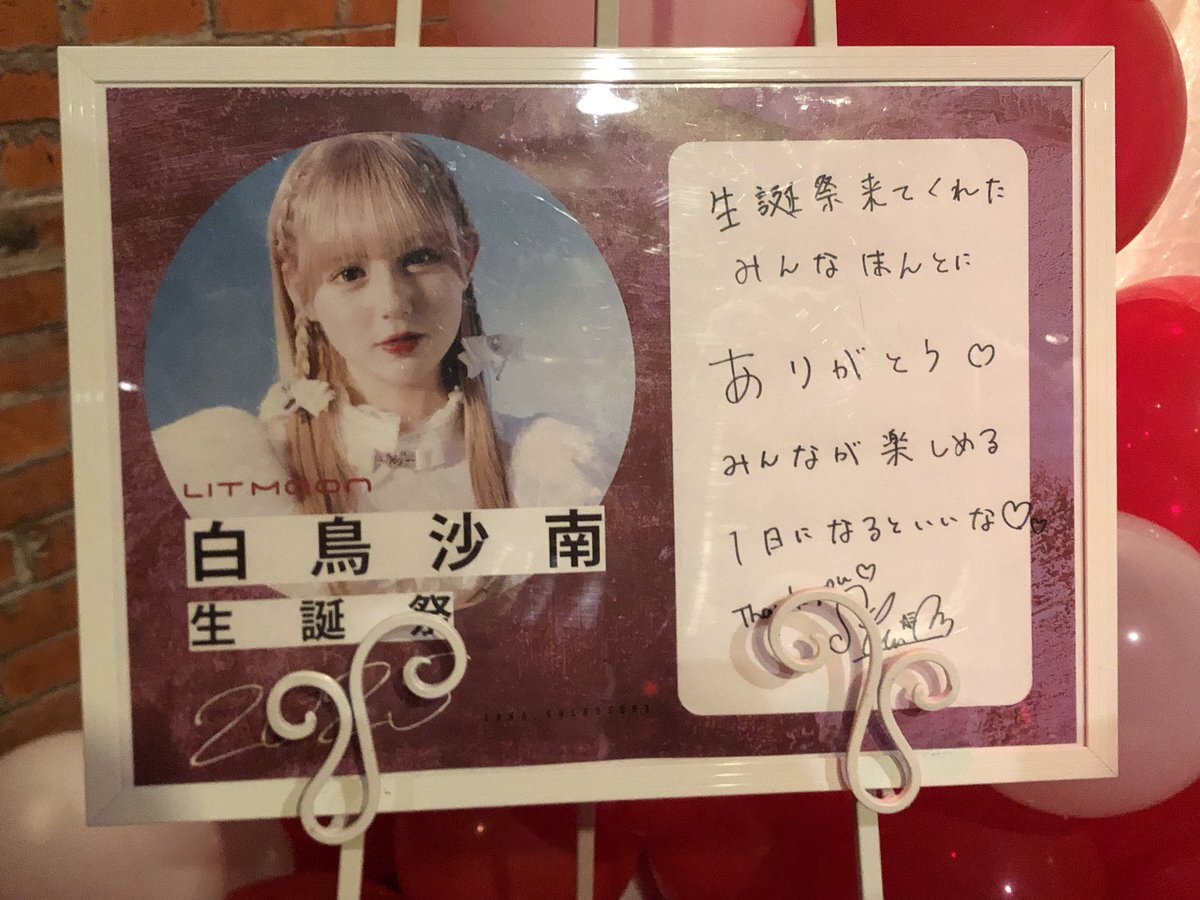 LITMOON
白鳥沙南
生誕祭
2023
SANA SHIRATORI
生誕祭来てくれた
みんなほんとに
ありがとう♡
みんなが楽しめる
1日になるといいな♡♡
Thank you♡